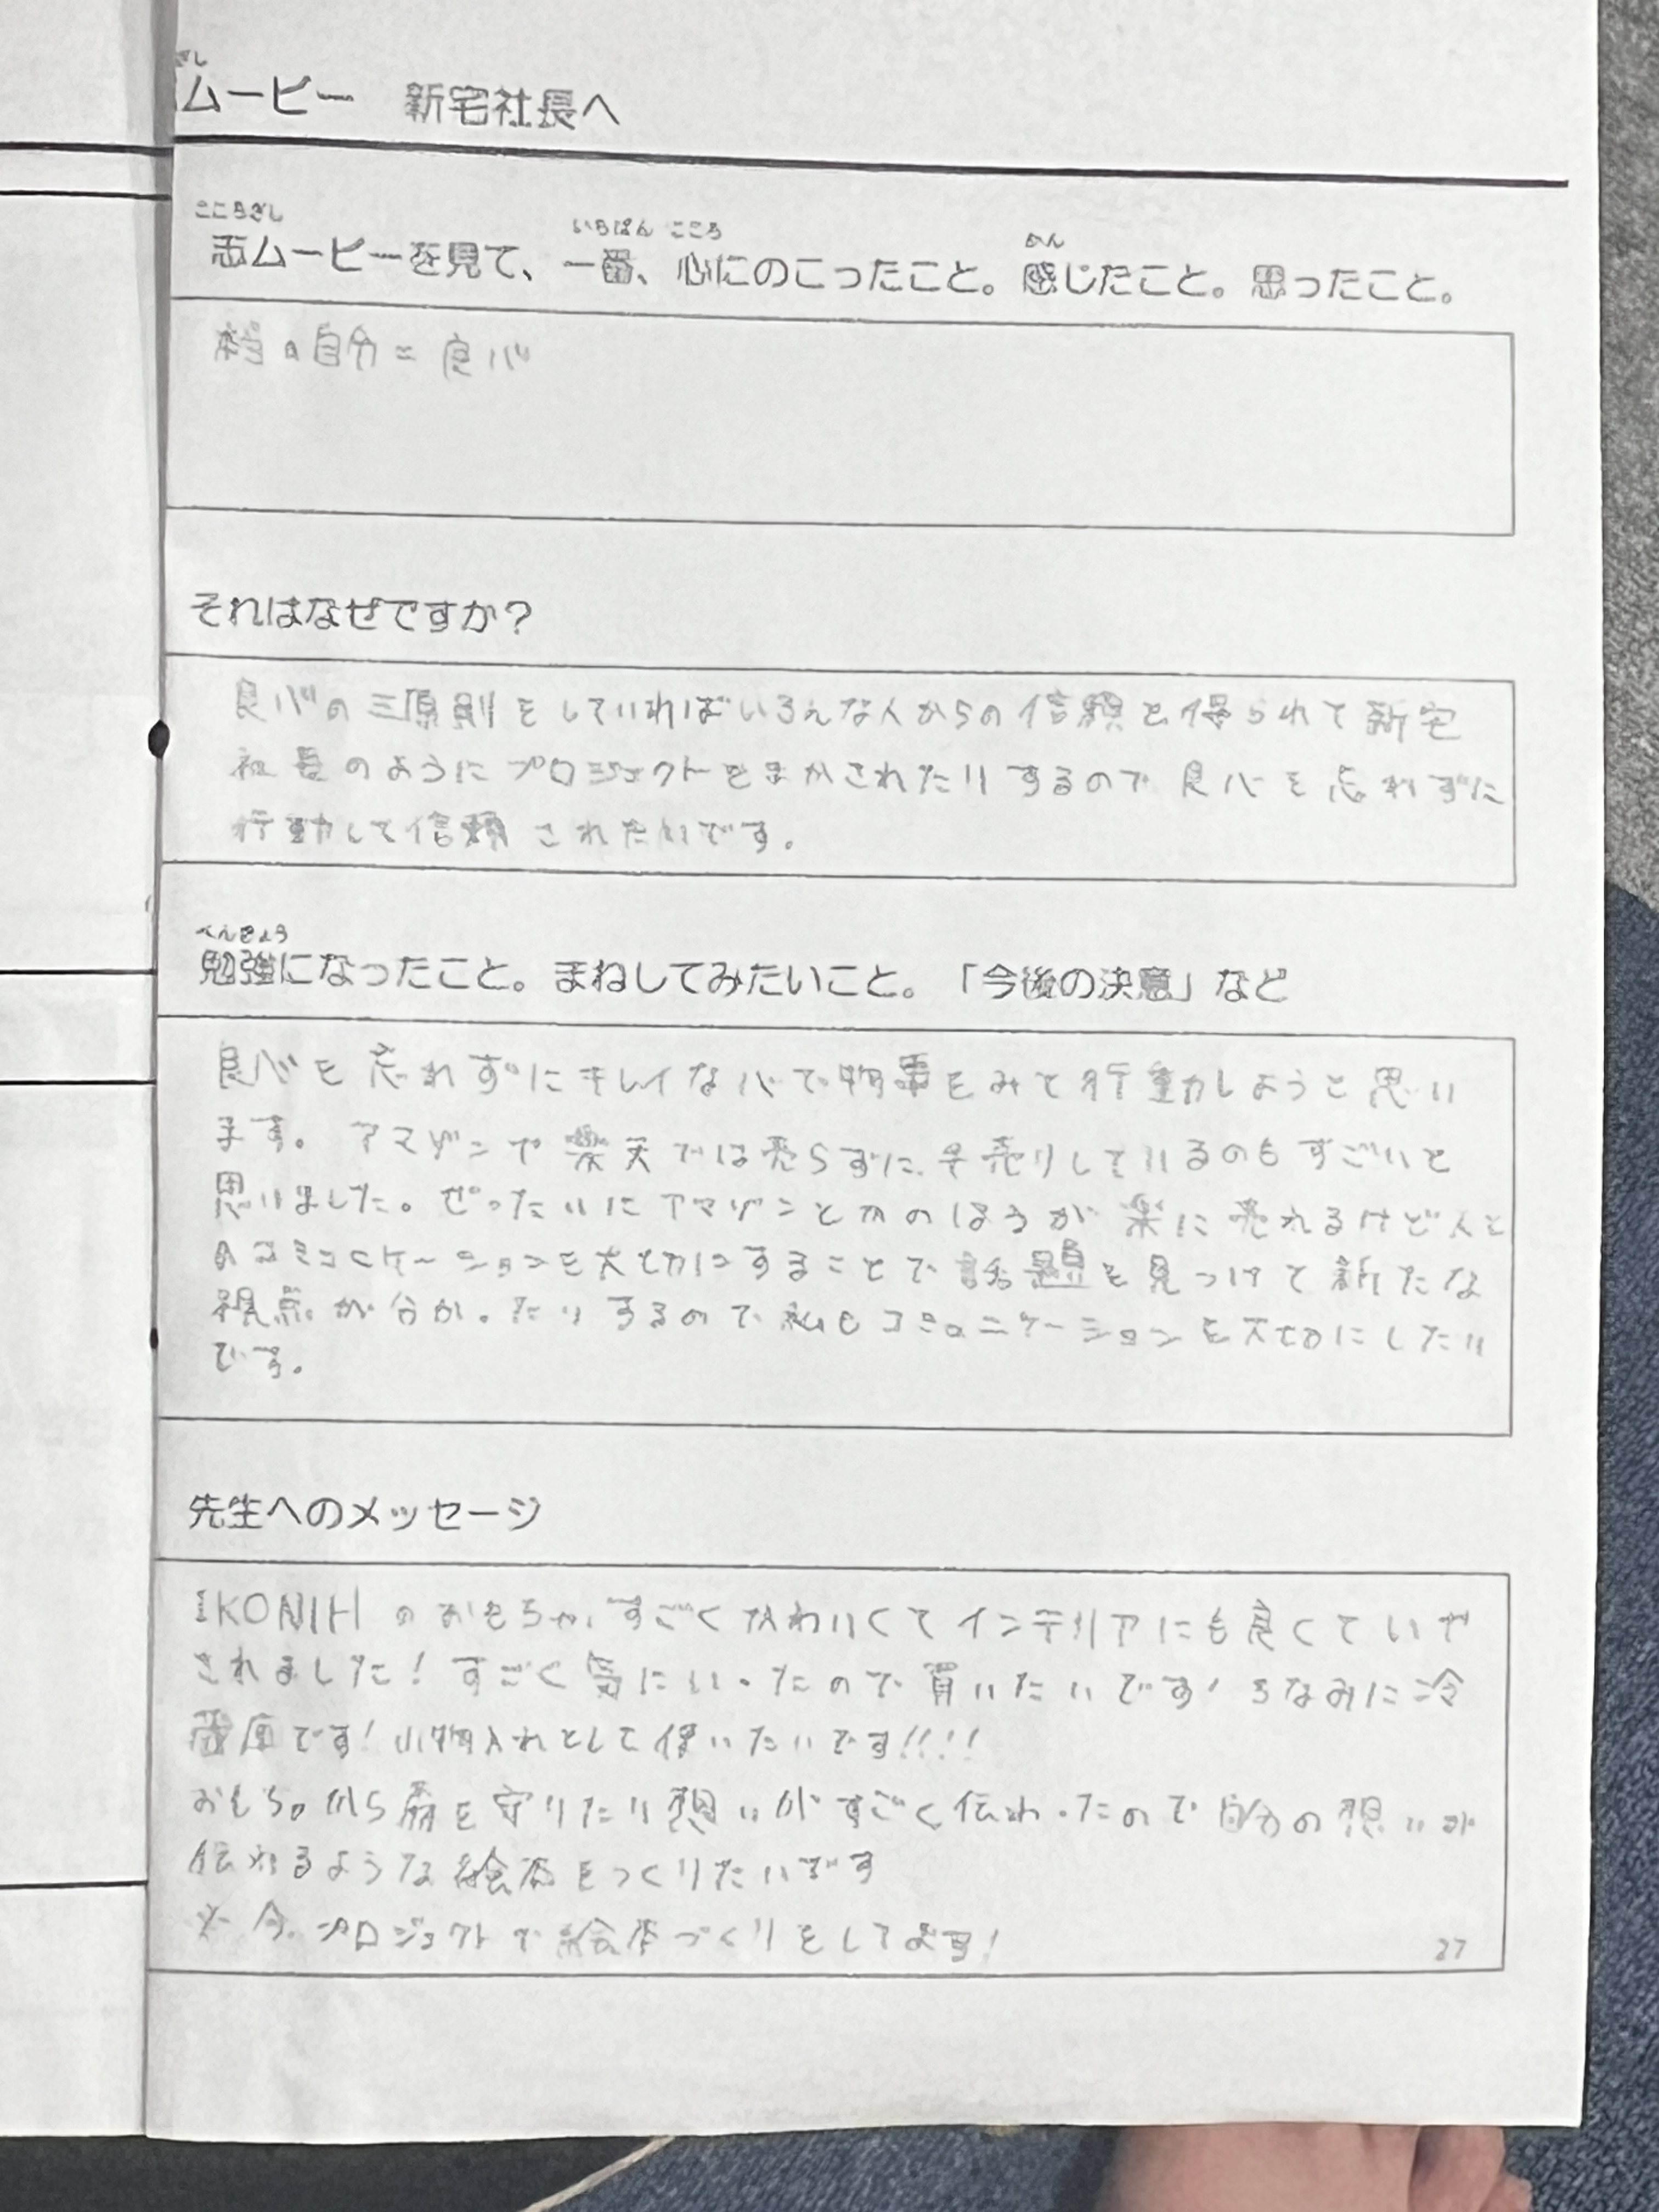 ざし
ムービー　新宅社長へ
こころざし　いちばん　こころ　かん
志ムービーを見て、一番、心にのこったこと。感じたこと。思ったこと。
本当の自分＝良心
それはなぜですか？
良心の三原則をしていればいろんな人からの信頼を得られて新宅
社長のようにプロジェクトをまかされたりするので良心を忘れずに
行動して信頼されたいです。
べんきょう
勉強になったこと。まねしてみたいこと。「今後の決意」など
良心を忘れずにキレイな心で物事をみて行動しようと思い
ます。アマゾンや楽天では売らずに手売りしているのもすごいと
思いました。ぜったいにアマゾンとかのほうが楽に売れるけど人と
のコミュニケーションを大切にすることで話題を見つけて新たな
視点が分かったりするので私もコミュニケーションを大切にしたい
です。
先生へのメッセージ
IKONIHのおもちゃ、すごくかわいくてインテリアにも良くていや
されました！すごく気にいったので買いたいです！ちなみに冷
蔵庫です！小物入れとして使いたいです!!!!
おもちゃから森を守りたい想いがすごく伝わったので自分の想いが
伝わるような絵本をつくりたいです
※今、プロジェクトで絵本づくりをしてます！
27